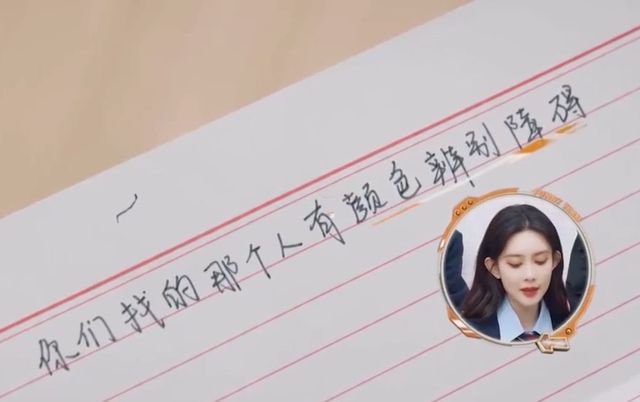 你们找的那个人有颜色辨别障碍